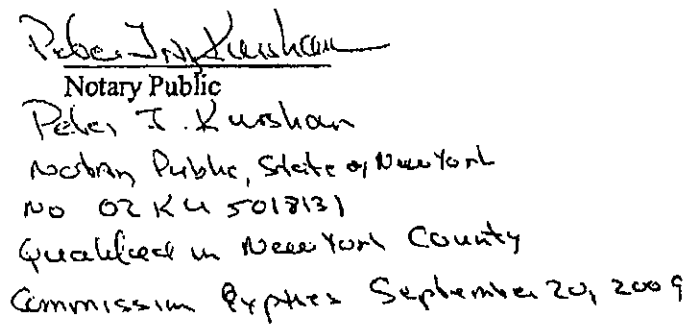 Peter J. Kurshan
Notary Public
Peter J. Kurshan
Notary Public, State of New York
No 02KU5018131
Qualified in New York County
Commission Expires September 20, 2009